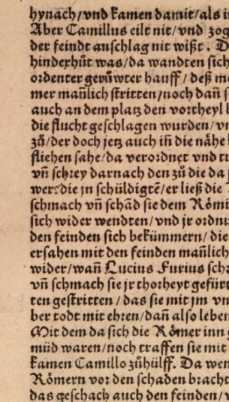 hynach/vnd kamen damit/als i
Aber Camillus eilt nit/vnd zog
der feindt anschlag nit wißt. D
hinderhůt was/da wandten sich
ordenter gerůwter hauff/deß m
mer manlich stritten/noch dañ s
auch an dem platz den vortheyl b
die flucht geschlagen wurden/vn
zů/der doch jetz auch iñ die nähe
fliehen sahe/da verordnet vnd tr
vñ schrey darnach den zů die da f
wer:die jn schüldigtē/er ließ die
schmach vñ schäd sie dem Römi
sich wider wendten/vnd jr ordnu
den feinden sich bekümmern/die
ersahen mit den feinden mañlich
wider/wañ Lucius Furius schr
vñ schmach sie jr thorheyt gefürt
ten gestritten/das sie mit jm vn
ber todt mit ehren/dañ also leben
Mit dem da sich die Römer inn
müd waren/noch traffen sie mit
kamen Camillo zůhülff. Da wen
Römern vor den schaden bracht
das geschach auch den feinden/v